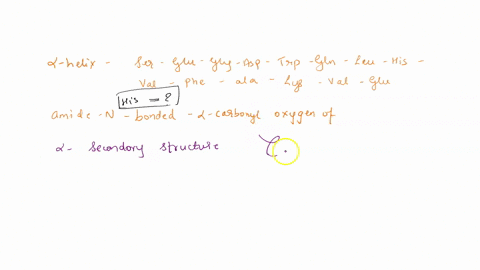 α-helix - Ser - Glu - Gly - Asp - Trp - Gln - Leu - His -
Val - Phe - ala - Lys - Val - Glu
His = ?
amide -N - bonded - α-carbonyl oxygen of
α- Secondary structure